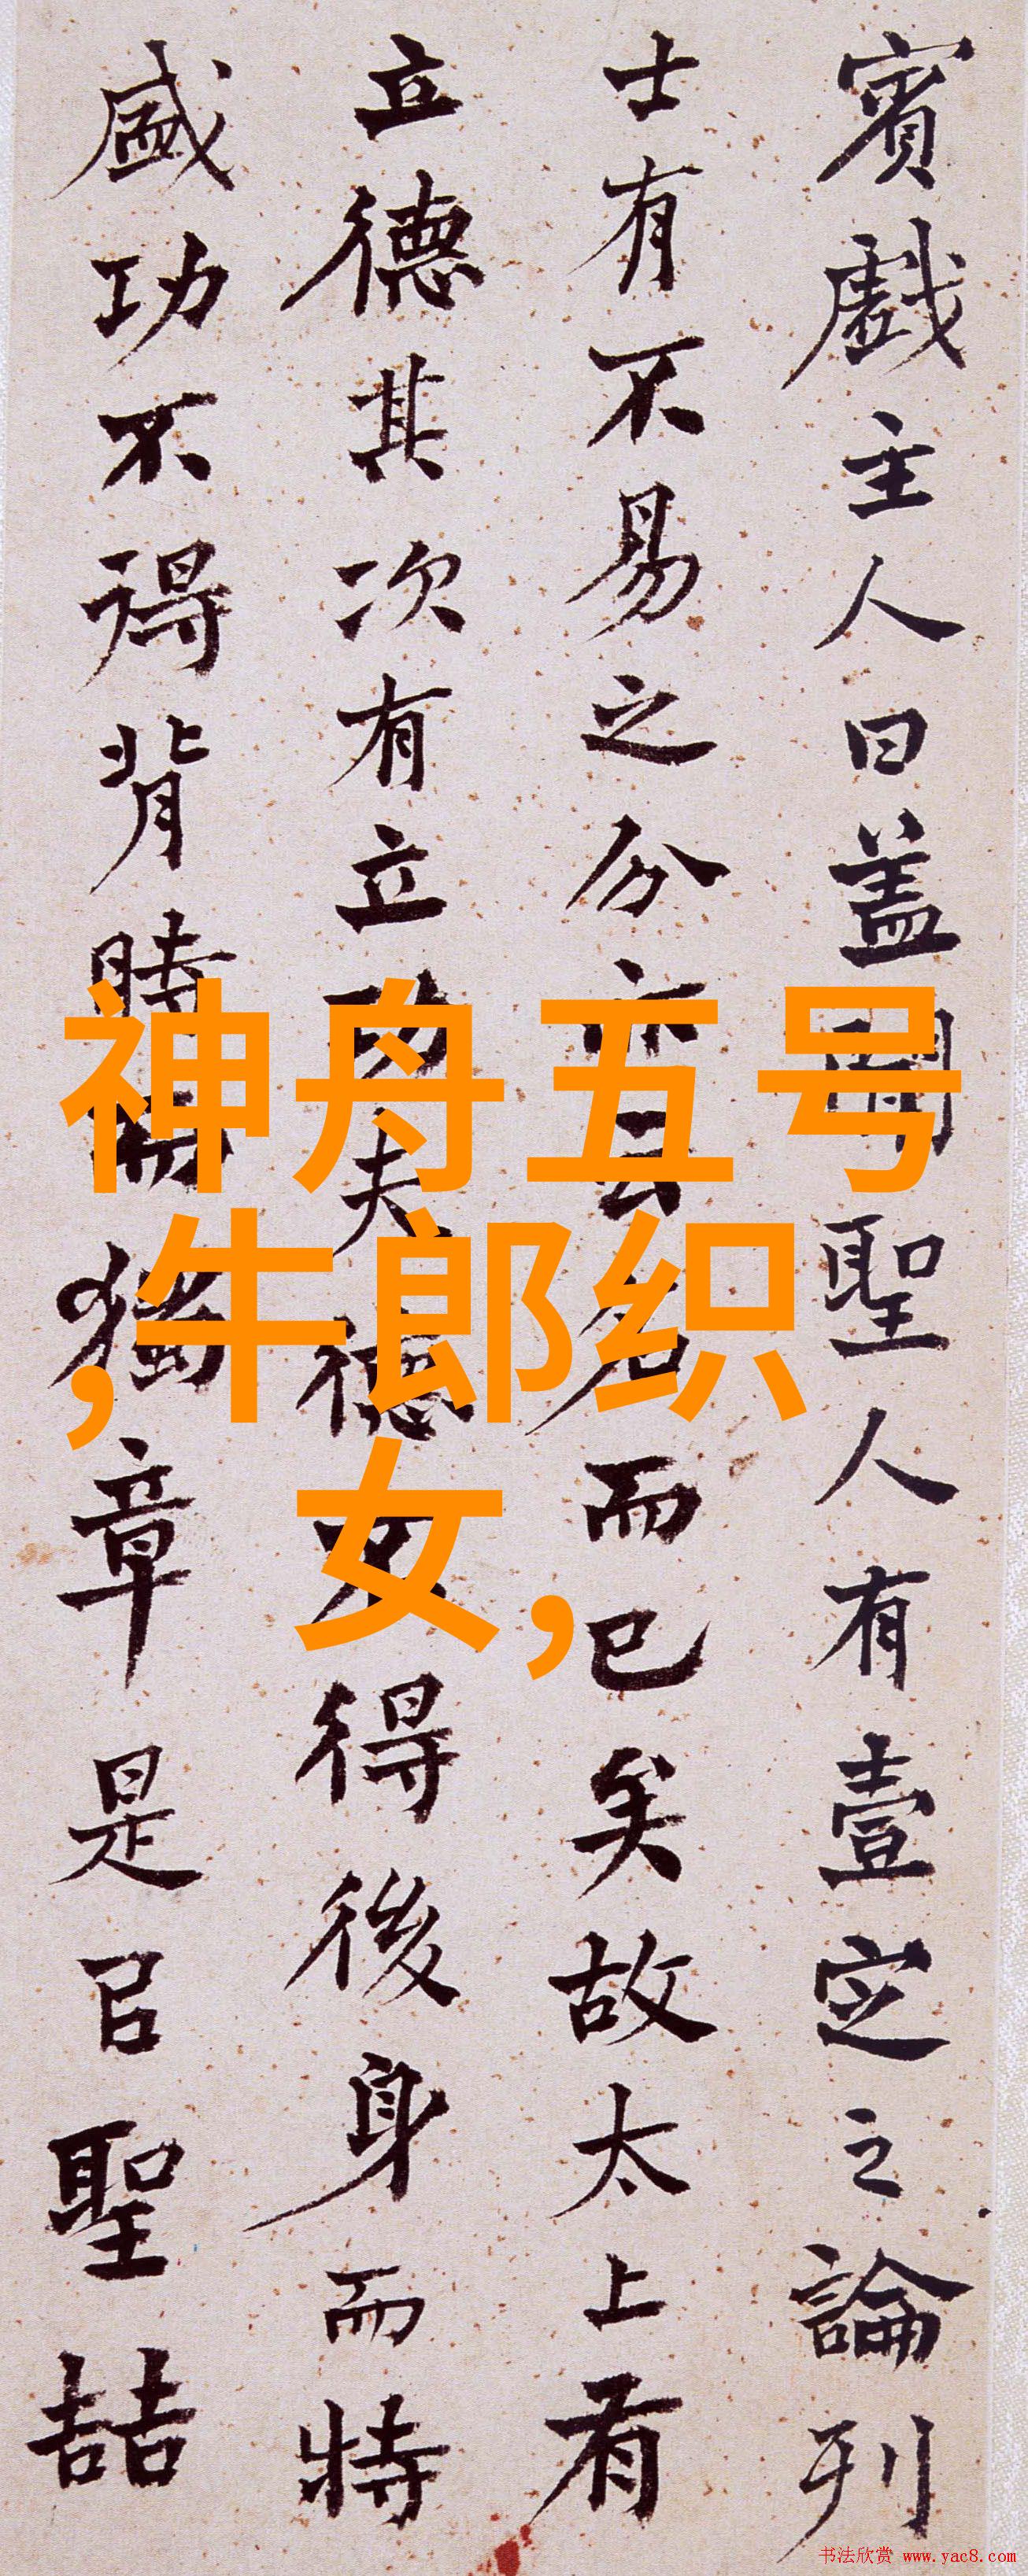 賓戲主人曰盖聞聖人有壹定之論列
士有不易之分亦云名而已矣故太上有
立德其次有立功夫德不得後身而特
盛功不得背時而獨章是㠯聖喆
神舟五号
,牛郎织
女,
书法欣赏 www.yac8.com